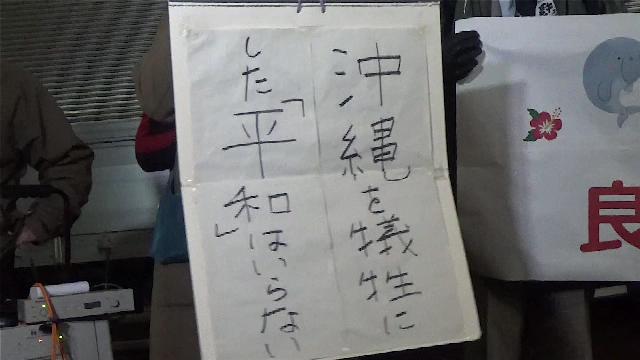 沖縄を犠牲に
した「平和」はいらない
良